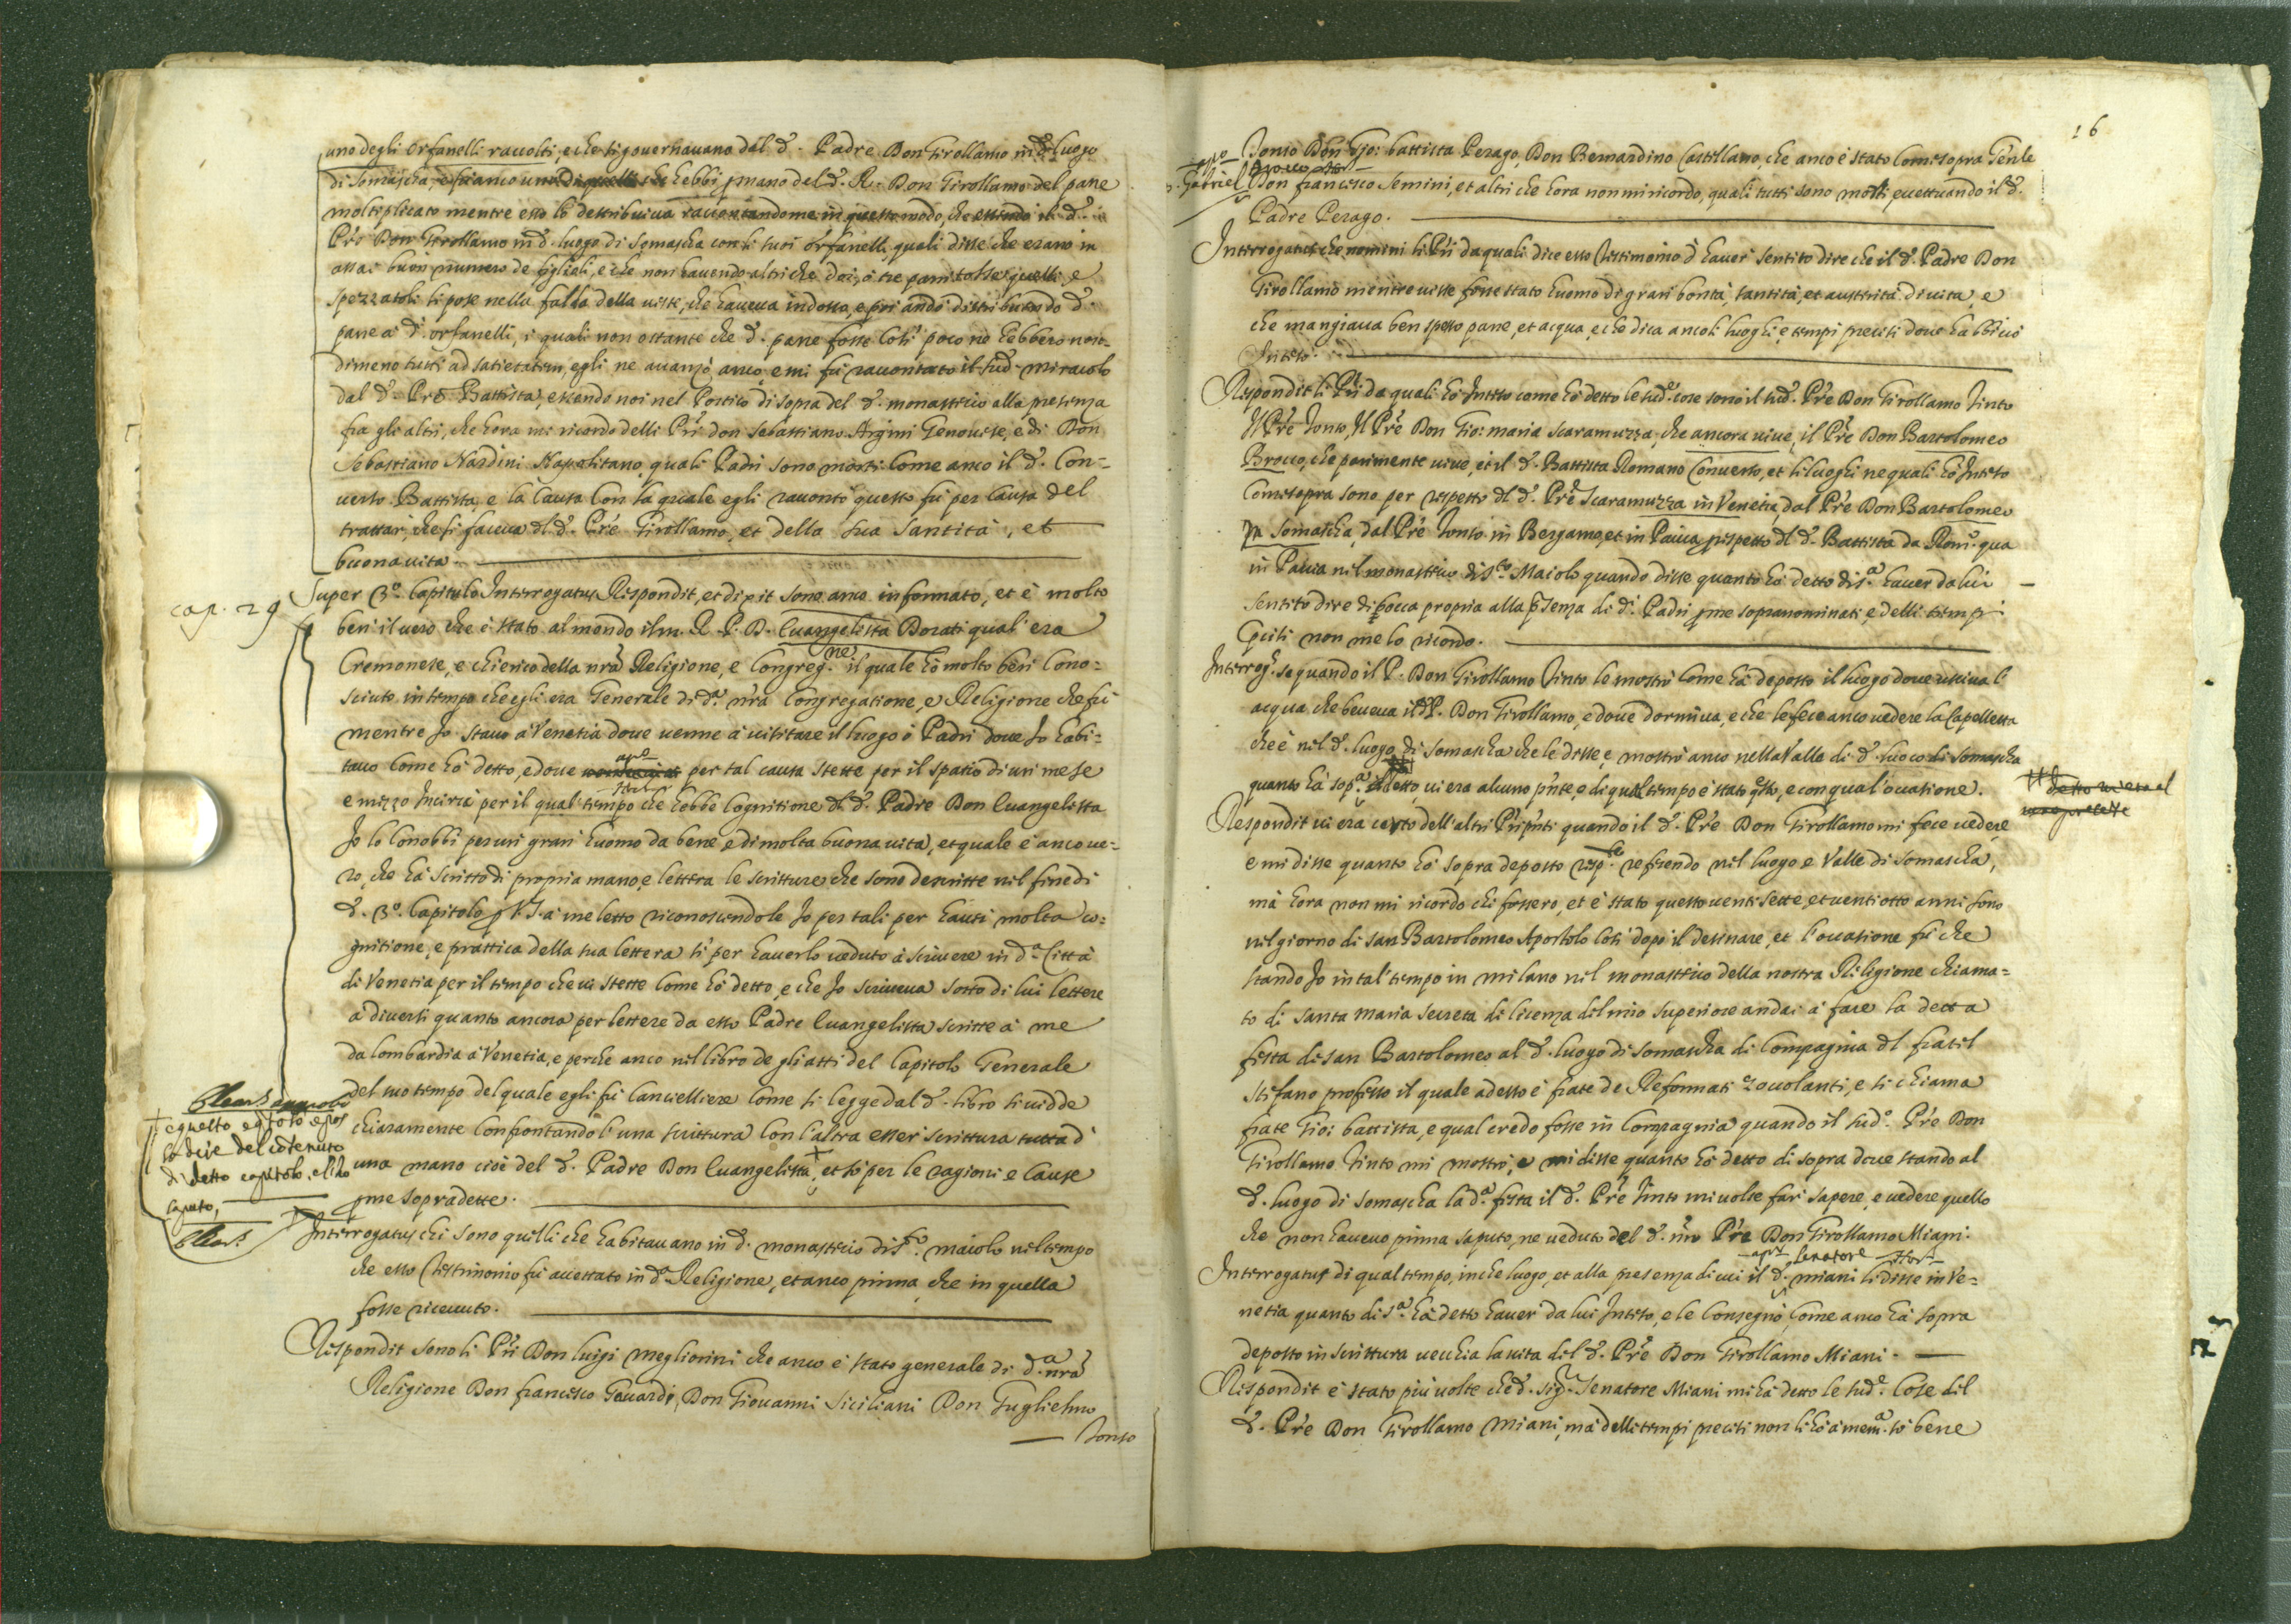 uno degli orfanelli raccolti, e che si governavano dal d. Padre Don Girollamo in d. luogo
di Somascha, che hebbi p mano del d. R. Don Girollamo del pane
moltiplicato mentre esso lo destribuiva raccontandome in questo modo, che essendo il d.
Pre Don Girollamo in d. luogo di Somascha con li suoi orfanelli quali disse che erano in
assai buon numero de figlioli, e che non havendo altri che doi, ò tre pani tolse quelli, e
spezzatoli li pose nella falda della veste, che haveva indosso, e poi andò distribuendo d.
pane à d. orfanelli, i quali non ostante che d. pane fosse così poco nò hebbero non-
dimeno tutti ad satietatem, egli ne avanzò anco, e mi fù raccontato il sud. miracolo
dal d. Pre Battista, essendo noi nel Portico di sopra del d. monasterio alla presenza
fra gli altri, che hora mi ricordo delli Pri don Sebastiano Argini Genovese, e di Don
Sebastiano Nardini Napolitano quali Padri sono morti come anco il d. Con-
verso Battista, e la causa con la quale egli raccontò questo fù per causa del
trattar, che si faceva dl d. Pre Girollamo, et della sua santità, et
buona vita.
cap. 29
Super 3.º Capitulo Interrogatus Respondit, et dixit sono anco informato, et è molto
ben il vero che è stato al mondo il m. R. P. D. Evangelista Dorati qual era
Cremonese, e chierico della nrà Religione, e Congreg.ne il quale hò molto ben cono-
sciuto in tempo che egli era Generale di d.ª nrà Congregatione, e Religione che fù
mentre Jo stavo à Venetia dove venne à visitare il luogo ò Padri dove Jo habi-
tavo come hò detto, e dove per tal causa stette per il spatio di un mese
e mezzo incirca per il qual tempo che hebbe cognitione dl d. Padre Don Evangelista
Jo lo conobbi per un gran huomo da bene, e di molta buona vita, et quale è anco ve-
ro, che hà scritto di propria mano, e lettera le scritture che sono descritte nel fine di
d. 3.º Capitolo p V.S. à me letto riconoscendole Jo per tali per havri molta co-
gnitione, e prattica della sua lettera sì per haverlo veduto à scrivere in d.ª Città
di Venetia per il tempo che vi stette come hò detto, e che Jo scriveva sotto di lui lettere
à diversi quanto ancora per lettere da esso Padre Evangelista scritte à me
da lombardia à Venetia, e perche anco nel libro de gli atti del Capitolo Generale
del suo tempo del quale egli fù cancelliere come si legge dal d. libro si vidde
chiaramente confrontando l'una scrittura con l'altra esser scrittura tutta d'
una mano cioè del d. Padre Don Evangelista, et sò per le ragioni e cause
pme sopradette.
di detto capitolo, e l'ho
saputo,
Interrogatus chi sono quelli che habitavano in d. monasterio di S.to maiolo nel tempo
che esso Testimonio fù accettato in d.ª Religione, et anco prima che in quella
fosse ricevuto.
Respondit sono li Pri Don luigi megliorini che anco è stato generale di d.ª nrà
Religione Don francesco Gavardi, Don Giovanni Siciliani Don Guglielmo
Tonso
16
Tonso Don Gio: battista Perago, Don Bernardino Castellano, che anco è stato come sopra Genle
D. Gabriel
Don francesco Semini, et altri che hora non mi ricordo, quali tutti sono morti eccettuando il d.
Padre Perago.
Interrogatus che nomini li Pri da quali dice esso Testimonio d'haver sentito dire che il d. Padre Don
Girollamo mentre visse fosse stato huomo di gran bontà, santità, et austerità di vita, e
che mangiava ben spesso pane, et acqua, e che dica anco li luoghi, e tempi preciti dove habbi ciò
Inteso.
Respondit li Pri da quali hò Inteso come hò detto le sud.e cose sono il sud. Pre Don Girollamo Tinto
Il Pre Tonso, Il Pre Don Gio: maria Scaramuzza, che ancora vive, il Pre Don Bartolomeo
Brocco, che parimente vive, et il d. Battista Romano Converso, et li luoghi ne quali hò Inteso
come sopra sono per rispetto dl d. Pre Scaramuzza in Venetia dal Pre Don Bartolomeo
in Somascha, dal Pre Tonso in Bergamo, et in Pavia p rispetto dl d. Battista da Rom. qua
in Pavia nel monasterio di S.to Maiolo quando disse quanto hà detto di s.ª haver da lui
sentito dire di bocca propria alla p̄senza di d. Padri pme sopranominati, e delli tempi
pciti non me lo ricordo.
Interrog. se quando il P. Don Girollamo Tinto le mostrò come hà deposto il luogo dove usciva l'
acqua che beveva il d. P. Don Girollamo, e dove dormiva, e che le fece anco vedere la Capelletta
che è nel d. luogo di Somascha che le disse, e mostrò anco nella Valle di d. luoco di Somascha
quanto hà sop.ª detto, vi era alcuno pnte, e di qual tempo è stato qsto, e con qual'occasione.
Respondit vi era certo dell'altri Pri pnti quando il d. Pre Don Girollamo mi fece vedere
e mi disse quanto hò sopra deposto risp.e rescendo nel luogo e Valle di Somascha,
mà hora non mi ricordo chi fossero, et è stato questo venti sette, et venti otto anni sono
nel giorno di san Bartolomeo Apostolo così dopo il desinare, et l'occasione fù che
stando Jo in tal tempo in milano nel monasterio della nostra Religione chiama-
to di santa maria secreta di licenza del mio superiore andai à fare la detta
festa di san Bartolomeo al d. luogo di Somascha di compagnia dl fratel
stefano professo il quale adesso è frate de Reformati zocolanti, e si chiama
frate Gio: battista, e qual credo fosse in compagnia quando il sud.º Pre Don
Girollamo Tinto mi mostrò, e mi disse quanto hò detto di sopra dove stando al
d. luogo di Somascha la d.ª festa il d. Pre Tinto mi volse far sapere, e vedere quello
che non havevo prima saputo, ne veduto del d. nro Pre Don Girollamo Miani.
senatore
Interrogatus di qual tempo, in che luogo, et alla presenza di cui il d. miani li disse in Ve-
netia quanto di s.ª hà detto haver da lui Inteso, e le consegnò come anco hà sopra
deposto in scrittura vecchia la vita del d. Pre Don Girollamo Miani.
Respondit è stato più volte che d. sig. Senatore Miani mi hà detto le sud.e cose del
d. Pre Don Girollamo Miani, mà delli tempi preciti non li hò à mem.ª sò bene